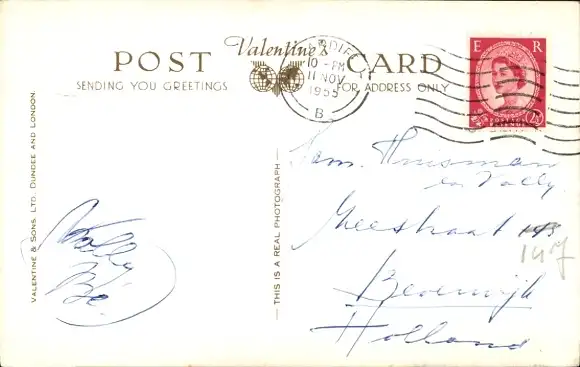 Valentine's
POST CARD
SENDING YOU GREETINGS
FOR ADDRESS ONLY
CARDIFF
10 - PM
11 NOV
1955
B
E R
POSTAGE
2½D
VALENTINE & SONS, LTD. DUNDEE AND LONDON.
THIS IS A REAL PHOTOGRAPH
Fam. Huisman
Volly
Meestraat 143
147
Beverwijk
Holland
Volly